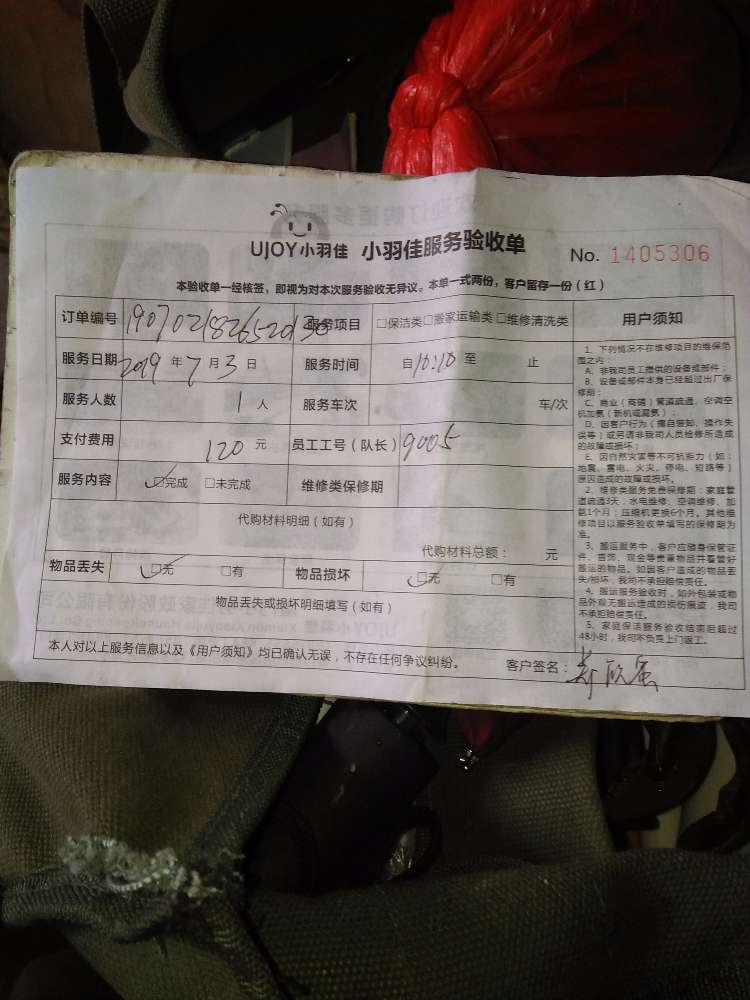 UJOY小羽佳 小羽佳服务验收单 No. 1405306
本验收单一经核签，即视为对本次服务验收无异议。本单一式两份，客户留存一份（红）
订单编号 服务项目 □保洁类□搬家运输类□维修清洗类 用户须知
服务日期 2019 年 7 月 3 日 服务时间 自10:10 至 止
服务人数 1 人 服务车次 车/次
支付费用 120 元 员工工号（队长） 9005
服务内容 ☑完成 □未完成 维修类保修期
代购材料明细（如有）
代购材料总额： 元
物品丢失 ☑无 □有 物品损坏 ☑无 □有
物品丢失或损坏明细填写（如有）
本人对以上服务信息以及《用户须知》均已确认无误，不存在任何争议纠纷。 客户签名：
1、下列情况不在维修项目的维保范
围之内：
A、非我司员工提供的设备或部件；
B、设备或部件本身已经超过出厂保
修期；
C、商业（商铺）管道疏通，空调空
机加氟（新机或漏氟）；
D、因客户行为（擅自装卸、操作失
误等）或另请非我司人员检修所造成
的故障或损坏；
E、因自然灾害等不可抗拒力（如：
地震、雷电、火灾、停电、短路等）
原因造成的故障或损坏。
2、维修类服务免费保修期：家庭管
道疏通3天，水电维修、空调维修、加
氟1个月；压缩机更换6个月。其他维
修项目以服务验收单填写的保修期为
准。
3、搬运服务中，客户应随身保管证
件、首饰、现金等贵重物品并看管好
搬运的物品。如因客户造成的物品丢
失/损坏，我司不承担赔偿责任。
4、搬运服务验收时，如外包装或物
品外观无搬运造成的损伤痕迹，我司
不承担赔偿责任。
5、家庭保洁服务验收结束后超过
48小时，我司不负责上门返工。